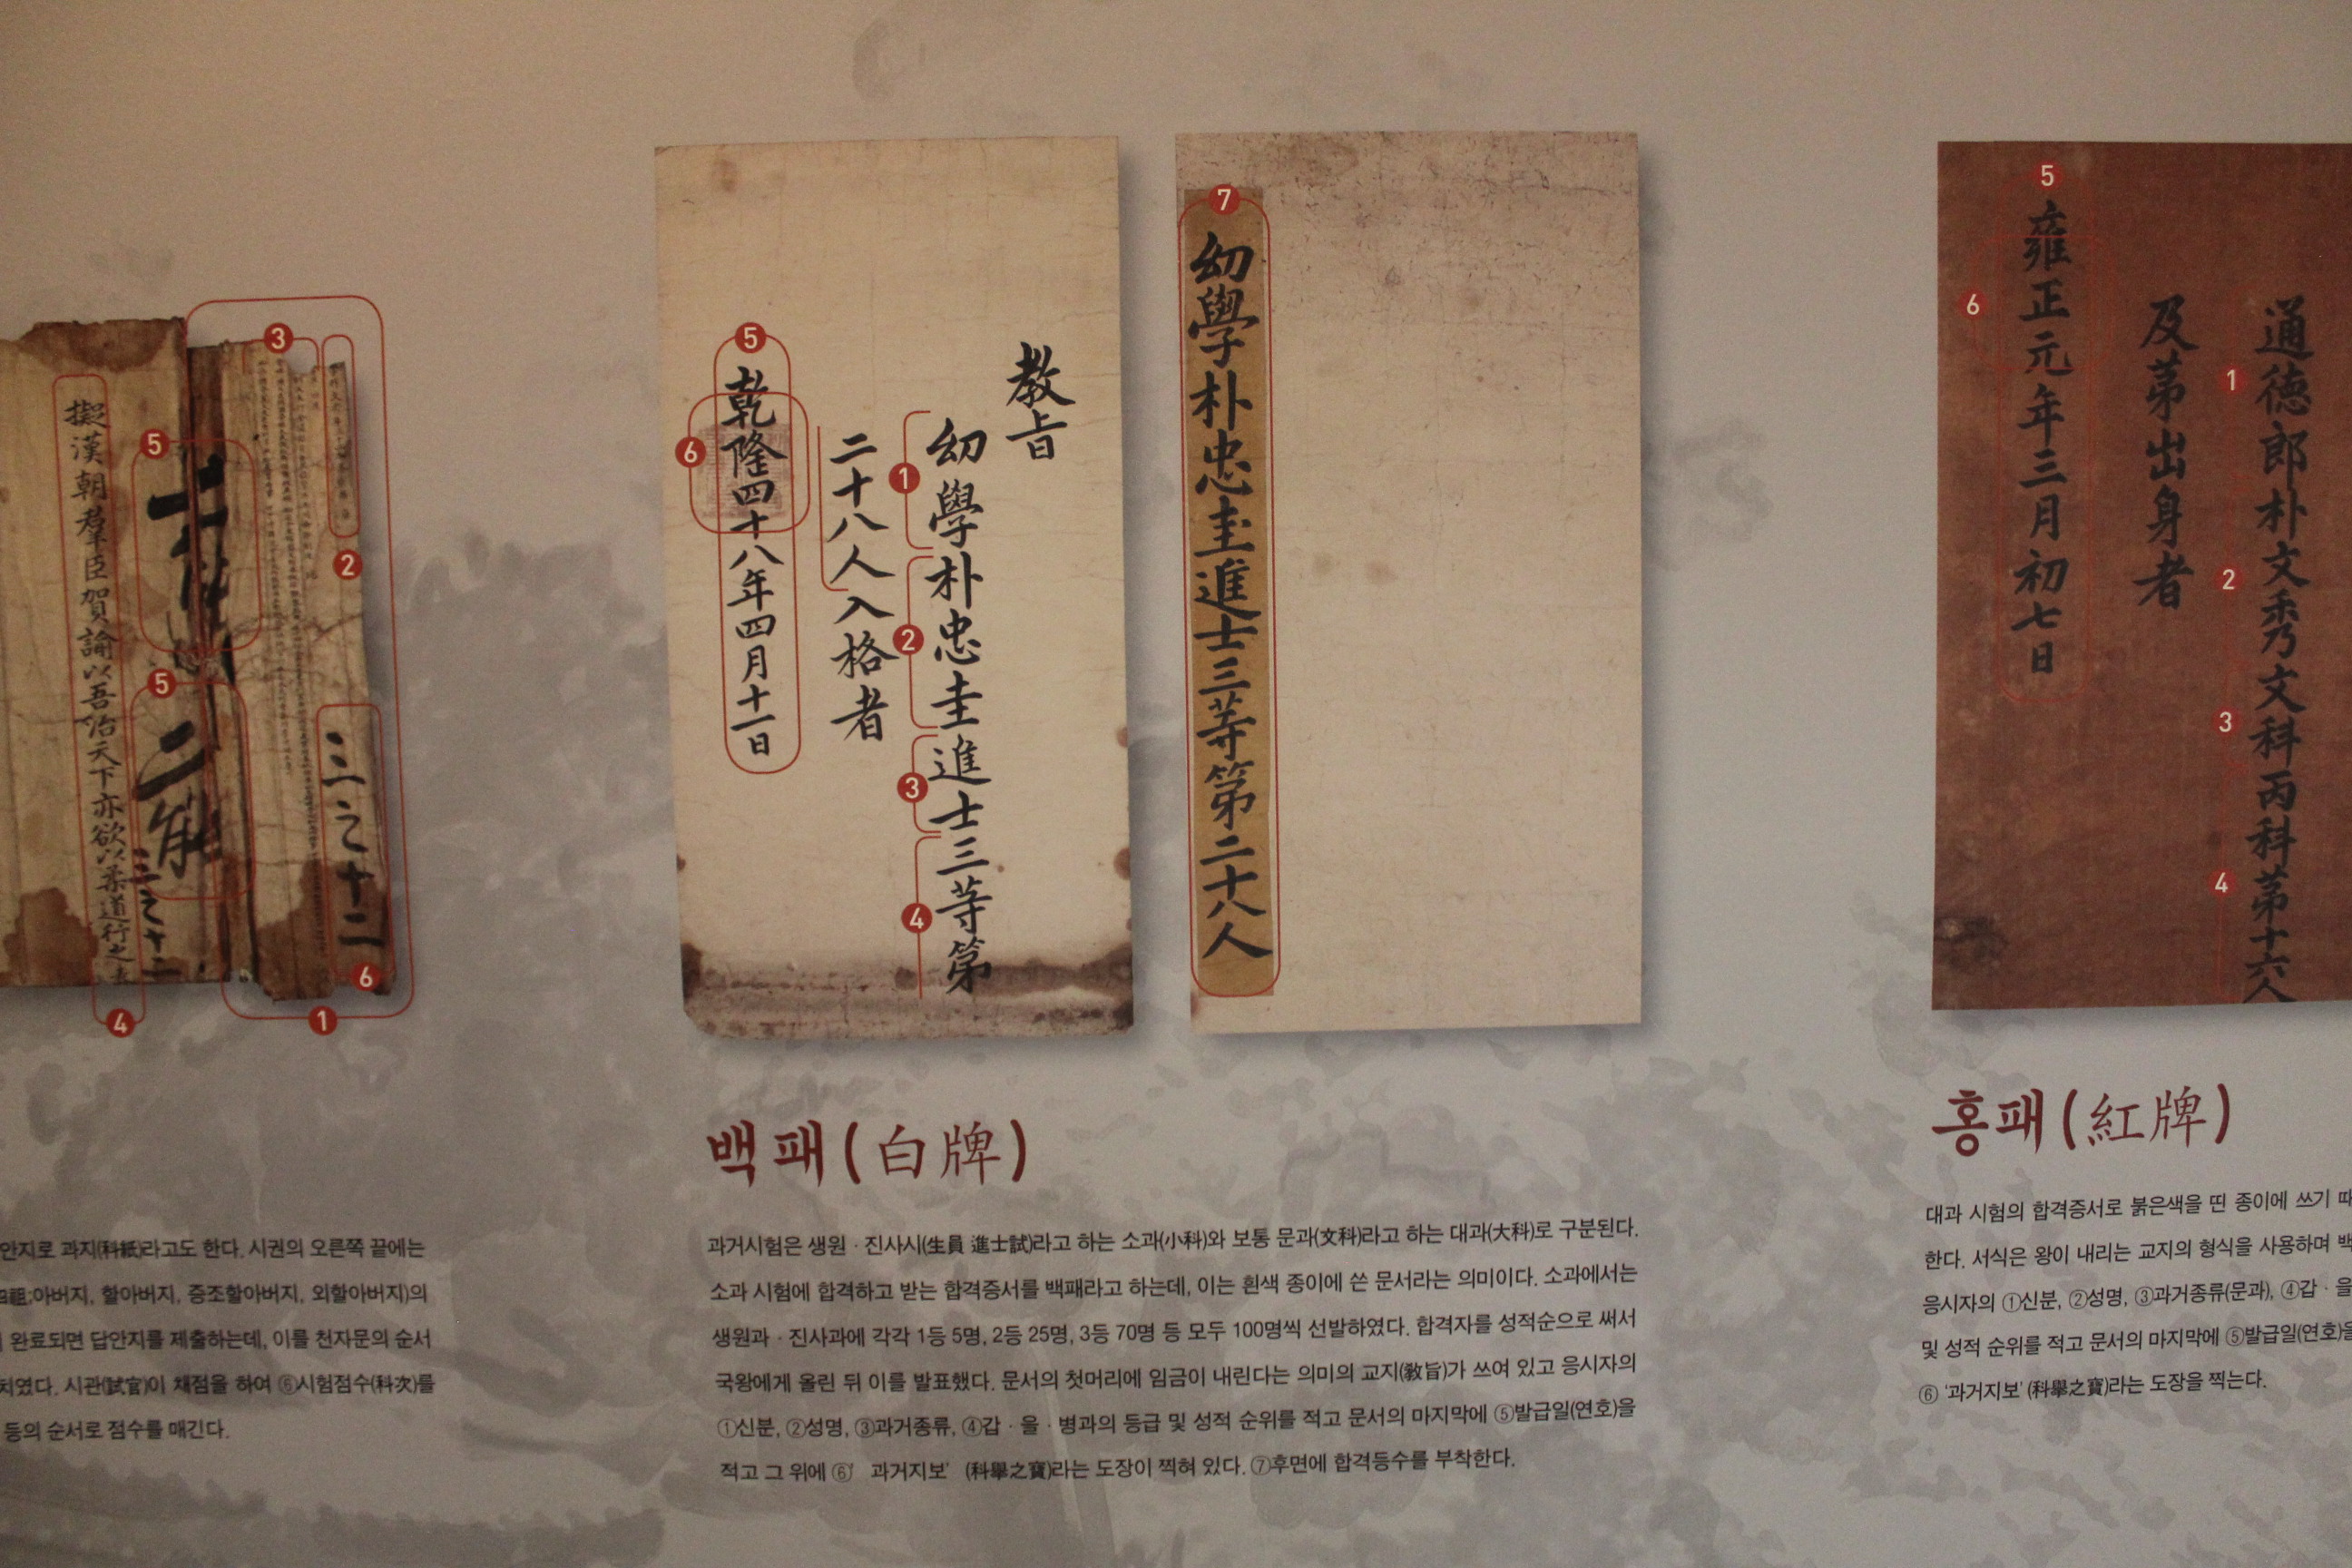 擬漢朝羣臣賀諭以吾治天下亦欲以柔道行之
三之十二
二
三之十二
3
5
2
5
4
1
6
안지로 과지(科紙)라고도 한다. 시권의 오른쪽 끝에는
아버지, 할아버지, 증조할아버지, 외할아버지)의
완료되면 답안지를 제출하는데, 이를 천자문의 순서
치였다. 시관(試官)이 채점을 하여 ⑥시험점수(科次)를
등의 순서로 점수를 매긴다.
教旨
幼學朴忠圭進士三等第
二十八人入格者
乾隆四十八年四月十一日
1
2
3
4
5
6
7
幼學朴忠圭進士三等第二十八人
백패(白牌)
과거시험은 생원 · 진사시(生員 進士試)라고 하는 소과(小科)와 보통 문과(文科)라고 하는 대과(大科)로 구분된다.
소과 시험에 합격하고 받는 합격증서를 백패라고 하는데, 이는 흰색 종이에 쓴 문서라는 의미이다. 소과에서는
생원과 · 진사과에 각각 1등 5명, 2등 25명, 3등 70명 등 모두 100명씩 선발하였다. 합격자를 성적순으로 써서
국왕에게 올린 뒤 이를 발표했다. 문서의 첫머리에 임금이 내린다는 의미의 교지(敎旨)가 쓰여 있고 응시자의
①신분, ②성명, ③과거종류, ④갑 · 을 · 병과의 등급 및 성적 순위를 적고 문서의 마지막에 ⑤발급일(연호)을
적고 그 위에 ⑥' 과거지보' (科擧之寶)라는 도장이 찍혀 있다. ⑦후면에 합격등수를 부착한다.
通德郎朴文秀文科丙科第十六人
及第出身者
雍正元年三月初七日
1
2
3
4
5
6
홍패(紅牌)
대과 시험의 합격증서로 붉은색을 띤 종이에 쓰기 때
한다. 서식은 왕이 내리는 교지의 형식을 사용하며 백
응시자의 ①신분, ②성명, ③과거종류(문과), ④갑 · 을
및 성적 순위를 적고 문서의 마지막에 ⑤발급일(연호)을
⑥ '과거지보' (科擧之寶)라는 도장을 찍는다.